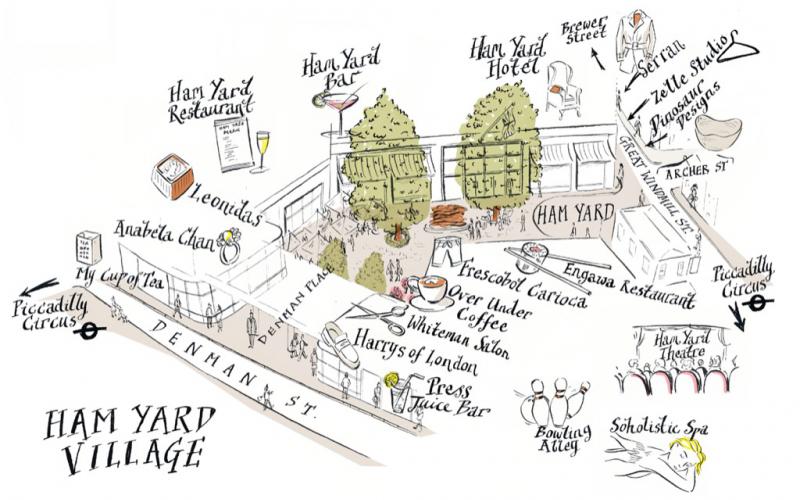 Brewer
Street
Ham Yard
Hotel
Serran
Zelle Studio
Dinosaur
Designs
Ham Yard
Bar
Ham Yard
Restaurant
GREAT WINDMILL ST.
ARCHER ST
Leonidas
HAM YARD
Anabela Chan
My Cup of Tea
DENMAN PLACE
Frescobol Carioca
Engawa Restaurant
Over Under
Coffee
Piccadilly
Circus
Piccadilly
Circus
Whiteman Salon
Harrys of London
DENMAN ST.
Press
Juice Bar
Ham Yard
Theatre
HAM YARD
VILLAGE
Bowling
Alley
Soholistic Spa